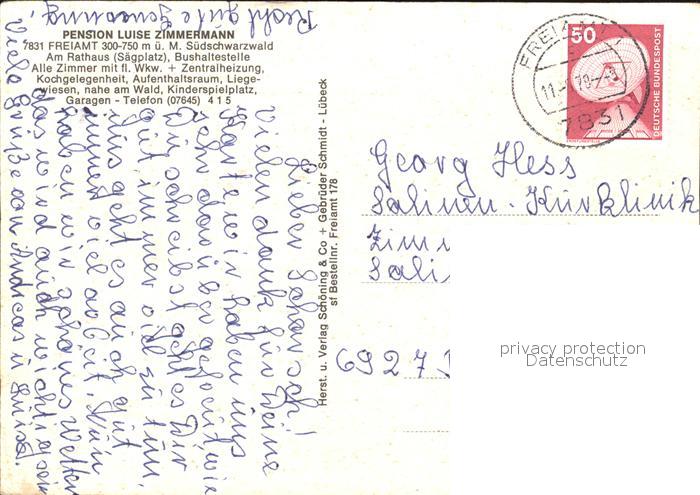 PENSION LUISE ZIMMERMANN
7831 FREIAMT 300-750 m ü. M. Südschwarzwald
Am Rathaus (Sägplatz), Bushaltestelle
Alle Zimmer mit fl. Wkw. + Zentralheizung,
Kochgelegenheit, Aufenthaltsraum, Liege-
wiesen, nahe am Wald, Kinderspielplatz,
Garagen - Telefon (07645) 4 1 5
Lieber Schorsch!
Vielen dank für Deine
Karte wir haben uns
sehr darüber gefreut wie
Du schreibst geht es Dir
gut immer viel zu tun.
Uns geht es auch gut
immer viel arbeit. Nun
haben wir schönes Wetter
das wird auch wichtig sein
Viele Grüße von Andreas u Luise.
Recht gute Genesung.
Herst. u. Verlag Schöning & Co + Gebrüder Schmidt - Lübeck
sf Bestellnr. Freiamt 178
50
DEUTSCHE BUNDESPOST
FREIAMT
7831
Georg Hess
Salinen-Kurklinik
Zimm
Sali
6927
privacy protection
Datenschutz